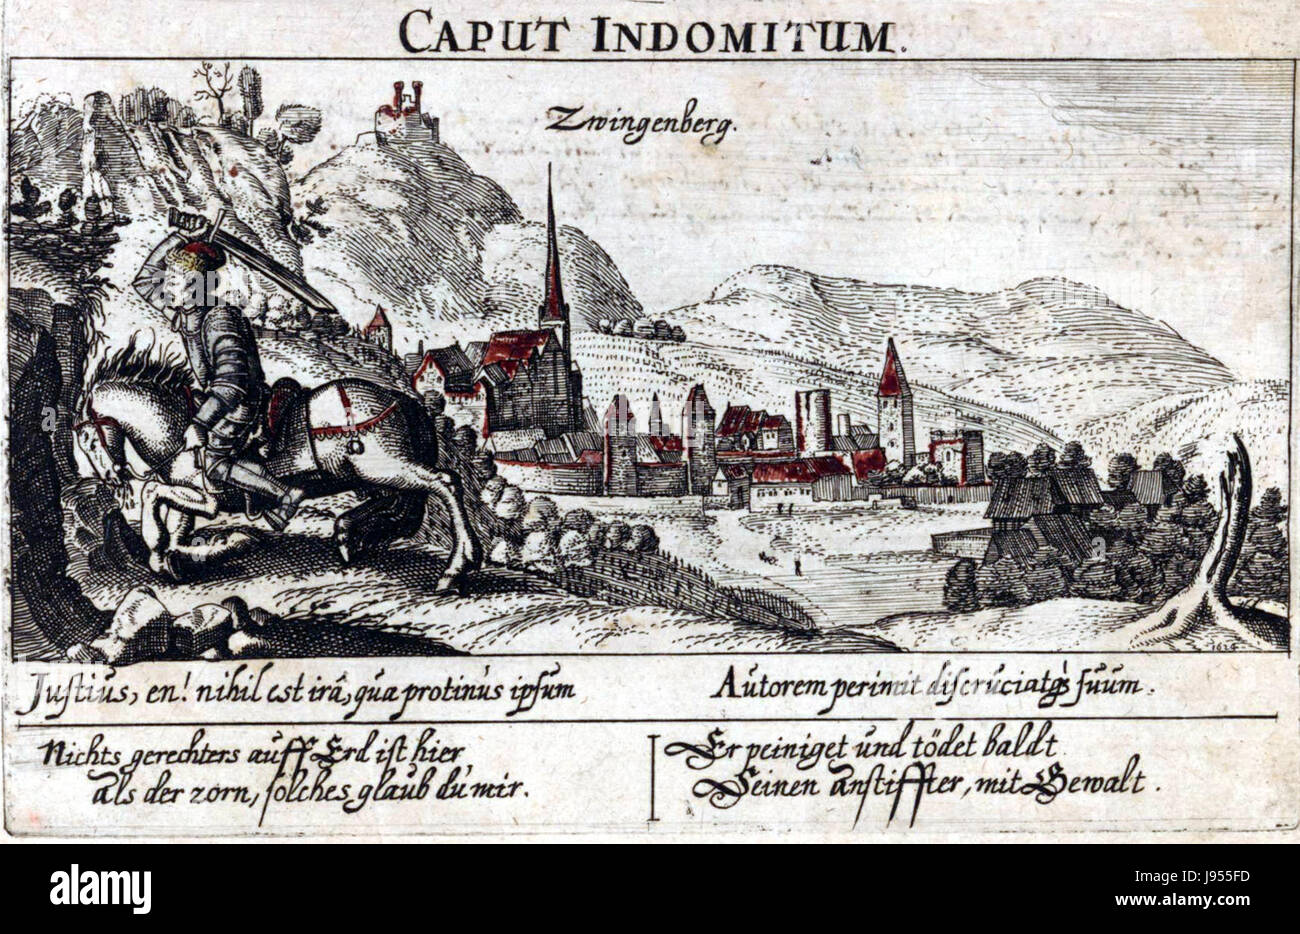 CAPUT INDOMITUM.
Zwingenberg.
Justius, en! nihil est irâ, quæ protinus ipsum
Autorem perimit discruciatq́; suum.
Nichts gerechters auff Erd ist hier,
als der zorn, solches glaub du mir.
Er peiniget und tödet baldt
Seinen anstiffter, mit Gewalt.
alamy stock photo
J955FD
www.alamy.com